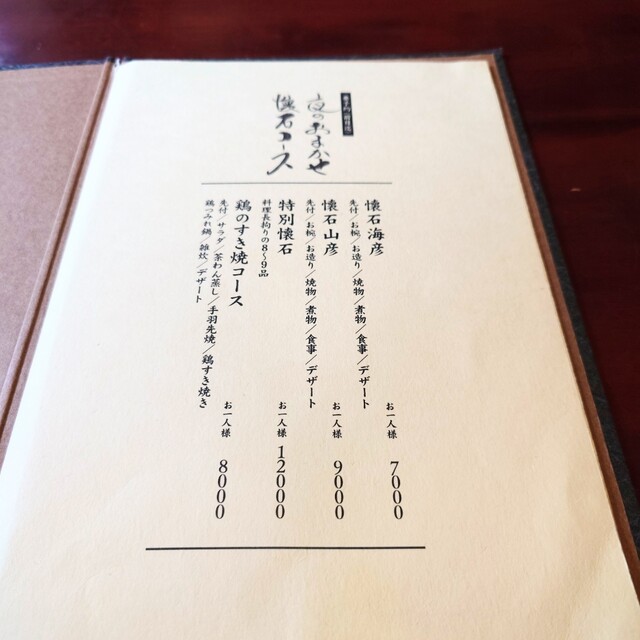 夜のおまかせ
懐石コース
懐石海彦
先付／お椀／お造り／焼物／煮物／食事／デザート
お一人様 7000
懐石山彦
先付／お椀／お造り／焼物／煮物／食事／デザート
お一人様 9000
特別懐石
料理長拘りの8〜9品
お一人様 12000
鶏のすき焼コース
先付／サラダ／茶わん蒸し／手羽先焼／鶏すき焼き
鶏つみれ鍋／雑炊／デザート
お一人様 8000